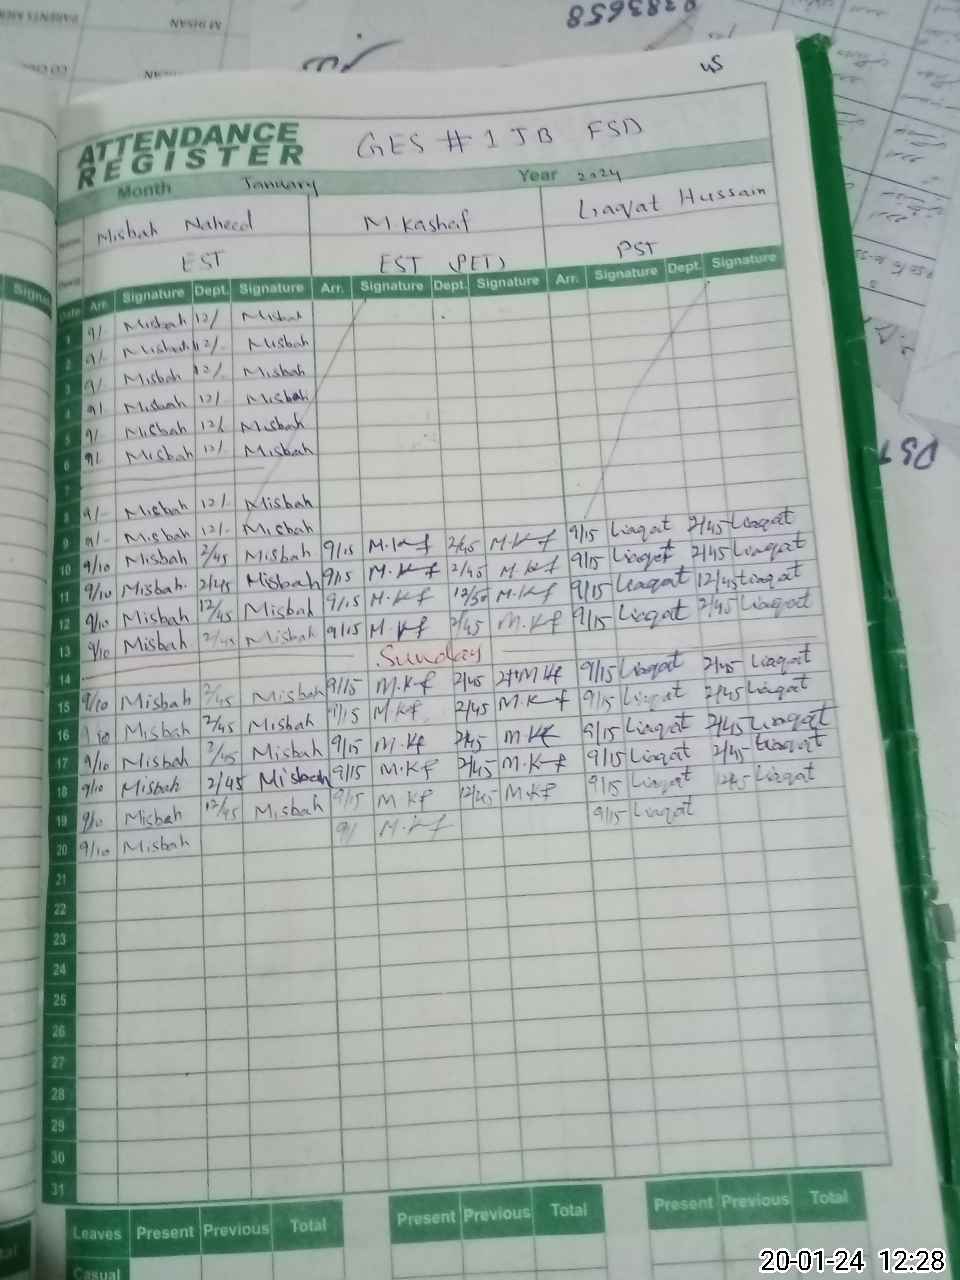 8383658
us
ATTENDANCE REGISTER GES # 1 JB FSD
Month January Year 2024
Misbah Naheed M. Kashaf Liaqat Hussain
EST EST (PET) PST
Date Arr. Signature Dept. Signature Arr. Signature Dept. Signature Arr. Signature Dept. Signature
1 9/- Misbah 12/ Misbah
2 9/- Misbah 12/- Misbah
3 9/- Misbah 12/- Misbah
4 9/- Misbah 12/- Misbah
5 9/- Misbah 12/- Misbah
6 9/- Misbah 12/- Misbah
7
8 9/- Misbah 12/- Misbah
9 9/- Misbah 12/- Misbah
10 9/10 Misbah 2/45 Misbah 9/15 M.Kf 2/45 M.Kf 9/15 Liaqat 2/45 Liaqat
11 9/10 Misbah. 2/45 Misbah 9/15 M.Kf 2/45 M.Kf 9/15 Liaqat 2/45 Liaqat
12 9/10 Misbah 12/45 Misbah 9/15 M.Kf 12/50 M.Kf 9/15 Liaqat 12/45 Liaqat
13 9/10 Misbah 2/45 Misbah 9/15 M.Kf 2/45 M.Kf 9/15 Liaqat 2/45 Liaqat
14 Sunday
15 9/10 Misbah 2/45 Misbah 9/15 M.Kf 2/45 M.Kf 9/15 Liaqat 2/45 Liaqat
16 9/10 Misbah 2/45 Misbah 9/15 M.Kf 2/45 M.Kf 9/15 Liaqat 2/45 Liaqat
17 9/10 Misbah 2/45 Misbah 9/15 M.Kf 2/45 M.Kf 9/15 Liaqat 2/45 Liaqat
18 9/10 Misbah 2/45 Misbah 9/15 M.Kf 2/45 M.Kf 9/15 Liaqat 2/45 Liaqat
19 9/10 Misbah 12/45 Misbah 9/15 M Kf 12/45 M.Kf 9/15 Liaqat 12/45 Liaqat
20 9/10 Misbah 9/ M.Kf 9/15 Liaqat
21
22
23
24
25
26
27
28
29
30
31
Leaves Present Previous Total Present Previous Total Present Previous Total
Casual
20-01-24 12:28